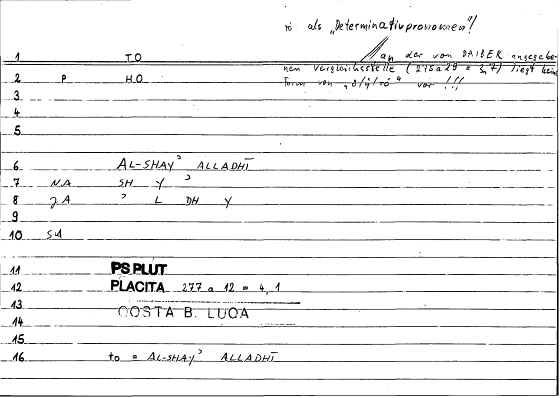 τó als „Determinativpronomen"!
an der von DAIBER angegebe-
nen Vergleichsstelle (275a29 = 3,7) liegt keine
Form von „ὁ/ἡ/τó" vor !!!
1 T.O
2 P. H.O
3
4
5
6 AL-SHAYʾ ALLADHĪ
7 N.A SH Y ʾ
8 J.A ʾ L DH Y
9
10 SU
11 PS PLUT
12 PLACITA 277 a 12 = 4,1
13 COSTA B. LUCA
14
15
16 to = AL-SHAYʾ ALLADHĪ